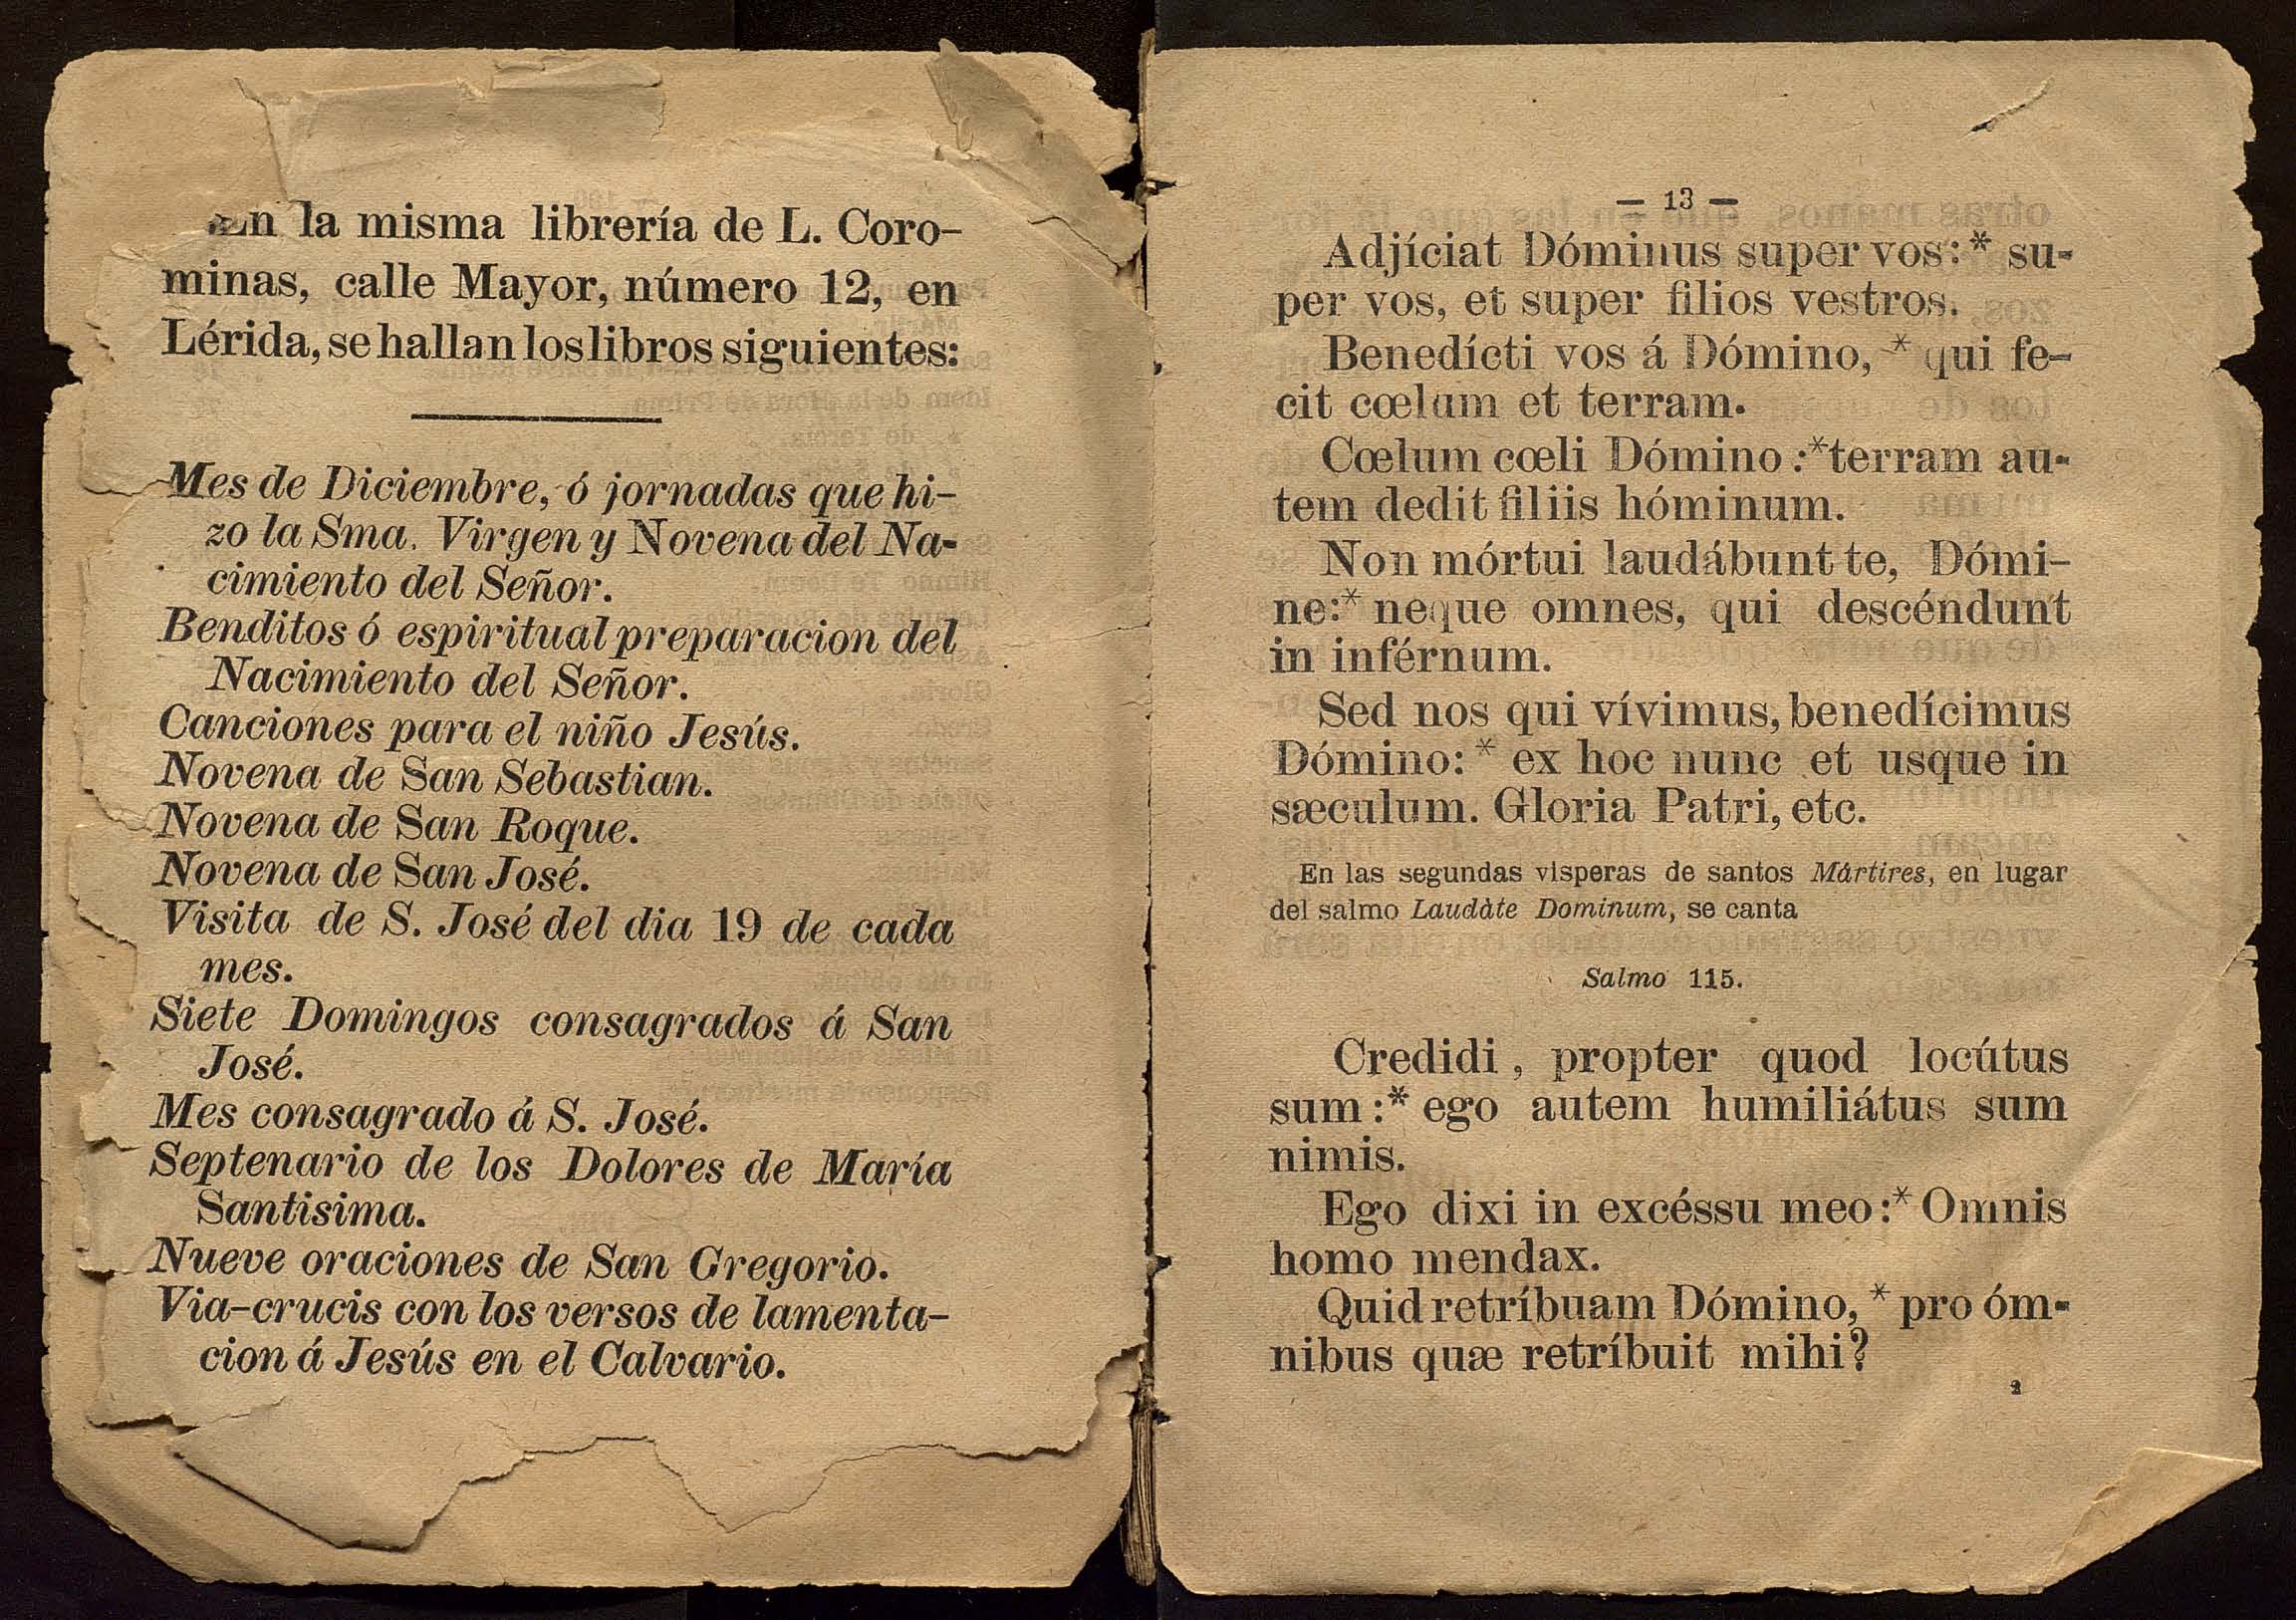 En la misma librería de L. Coro-
minas, calle Mayor, número 12, en
Lérida, se hallan los libros siguientes:
Mes de Diciembre, ó jornadas que hi-
zo la Sma. Virgen y Novena del Na-
cimiento del Señor.
Benditos ó espiritual preparacion del
Nacimiento del Señor.
Canciones para el niño Jesús.
Novena de San Sebastian.
Novena de San Roque.
Novena de San José.
Visita de S. José del dia 19 de cada
mes.
Siete Domingos consagrados á San
José.
Mes consagrado á S. José.
Septenario de los Dolores de María
Santisima.
Nueve oraciones de San Gregorio.
Via-crucis con los versos de lamenta-
cion á Jesús en el Calvario.
— 13 —
Adjíciat Dóminus super vos:* su-
per vos, et super filios vestros.
Benedícti vos á Dómino, * qui fe-
cit cœlum et terram.
Cœlum cœli Dómino :* terram au-
tem dedit filiis hóminum.
Non mórtui laudábunt te, Dómi-
ne:* neque omnes, qui descéndunt
in inférnum.
Sed nos qui vívimus, benedícimus
Dómino: * ex hoc nunc et usque in
sæculum. Gloria Patri, etc.
En las segundas visperas de santos Mártires, en lugar
del salmo Laudàte Dominum, se canta
Salmo 115.
Credidi, propter quod locútus
sum :* ego autem humiliátus sum
nimis.
Ego dixi in excéssu meo :* Omnis
homo mendax.
Quid retríbuam Dómino, * pro óm-
nibus quæ retríbuit mihi?
2